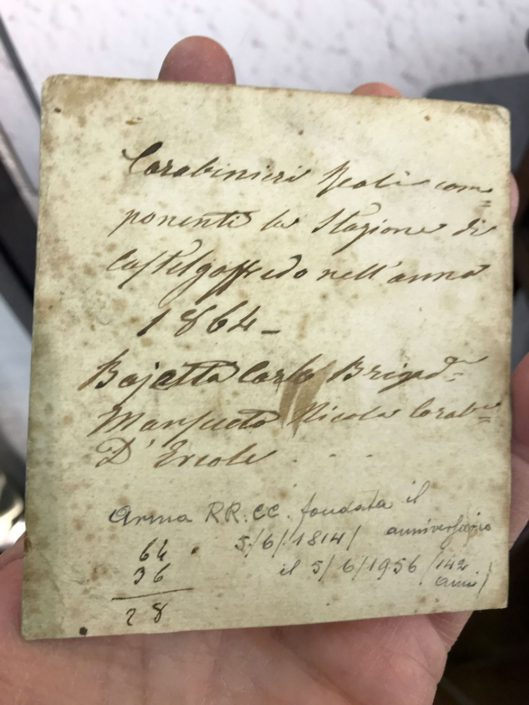 Carabinieri Reali com=
ponenti la Stazione di
Castelgoffredo nell'anno
1864 -
Bajetta Carlo Brigad.re
Mansueto Nicola Carab.re
D'Ercole . . .
Arma RR.CC. fondata il
5/6/1814/ anniversario
il 5/6/1956 (142
anni)
64
36
28